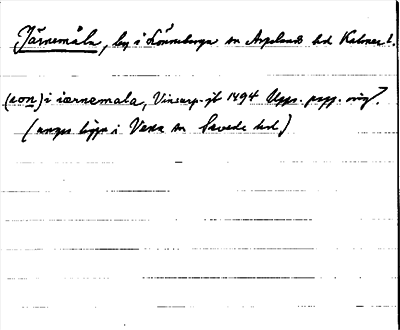 Järnemåla, by i Lönneberga sn Aspelands hd Kalmar l.
(son) i iærnemala, Vinsarp. jb 1494 Upps. papp. orig.
(anges ligga i Vena sn Sevede hd)